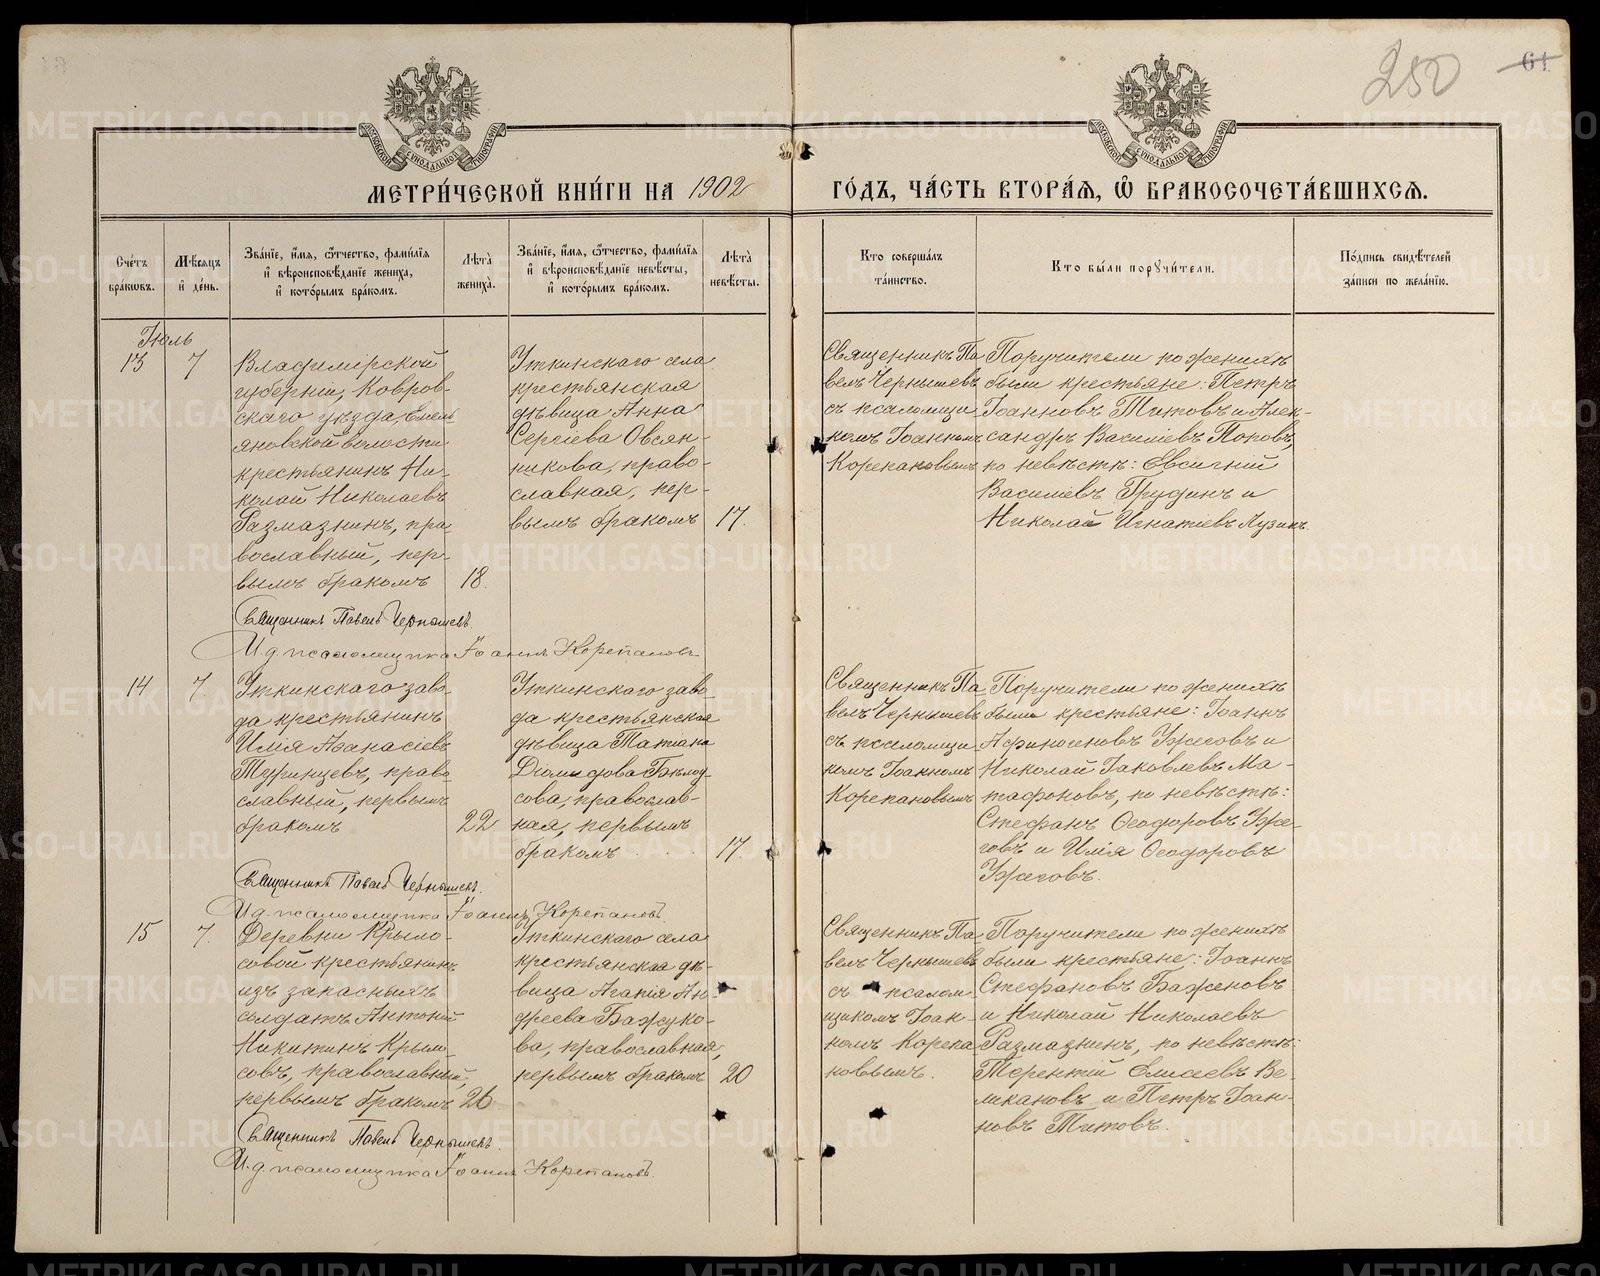 250
61
МОСКОВСКОЙ СѴНОДАЛЬНОЙ ТИПОГРАФІИ
МОСКОВСКОЙ СѴНОДАЛЬНОЙ ТИПОГРАФІИ
МЕТРИ́ЧЕСКОЙ КНИ́ГИ НА 1902 ГО́ДЪ, ЧА́СТЬ ВТОРА́Я, Ѽ БРАКОСОЧЕТА́ВШИХСЯ.
Сче́тъ
бра́кѡвъ.
Мѣ́сяцъ
и҆ де́нь.
Зва́нїе, и҆́мя, ѻ҆́тчество, фами́лїя
и҆ вѣроисповѣ́данїе жениха̀,
и҆ кото́рымъ бра́комъ.
Лѣ́та̀
жениха̀.
Зва́нїе, и҆́мя, ѻ҆́тчество, фами́лїя
и҆ вѣроисповѣ́данїе невѣ́сты,
и҆ кото́рымъ бра́комъ.
Лѣ́та̀
невѣ́сты.
Кто соверша́лъ
та́инство.
Кто бы́ли порꙋчи́тели.
По́дпись свидѣ́телей
за́писи по жела́нїю.
Іюль
13
7
Владимирской
губерніи, Ковров-
скаго уѣзда, Емель
яновской волости
крестьянинъ Ни-
колай Николаевъ
Размазнинъ, пра
вославный, пер-
вымъ бракомъ
18.
Уткинскаго села
крестьянская
дѣвица Анна
Сергіева Овсян-
никова, право-
славная, пер-
вымъ бракомъ
17.
Священникъ Па
велъ Чернышевъ
съ псаломщи
комъ Іоанномъ
Корепановымъ
Поручители по женихѣ
были крестьяне: Петръ
Іоанновъ Титовъ и Алек-
сандръ Василіевъ Поповъ,
по невѣстѣ: Евсигній
Василіевъ Грудинъ и
Николай Игнатіевъ Лузинъ.
Священникъ Павелъ Чернышевъ.
И. д. псаломщика Іоаннъ Корепановъ
14
7.
Уткинскаго заво-
да крестьянинъ
Илія Аѳанасіевъ
Туринцевъ, право
славный, первымъ
бракомъ
22
Уткинскаго заво-
да крестьянская
дѣвица Татіана
Діомидова Бѣлоу-
сова, православ-
ная, первымъ
бракомъ
17.
Священникъ Па
велъ Чернышевъ
съ псаломщи
комъ Іоанномъ
Корепановымъ
Поручители по женихѣ
были крестьяне: Іоаннъ
Афиногеновъ Ужеговъ и
Николай Іаковлевъ Ма-
тафоновъ, по невѣстѣ:
Стефанъ Ѳеодоровъ Уже-
говъ и Илія Ѳеодоровъ
Ужеговъ.
Священникъ Павелъ Чернышевъ.
И. д. псаломщика Іоаннъ Корепановъ.
15
7.
Деревни Крыло-
совой крестьянинъ
изъ запасныхъ
солдатъ Антоній
Никитинъ Крыло-
совъ, православный,
первымъ бракомъ
26
Уткинскаго села
крестьянская дѣ-
вица Агапія Ан-
дреева Бажуко-
ва, православная,
первымъ бракомъ
20
Священникъ Па-
велъ Чернышевъ
съ псалом
щикомъ Іоан-
номъ Корепа
новымъ.
Поручители по женихѣ
были крестьяне: Іоаннъ
Стефановъ Баженовъ
и Николай Николаевъ
Размазнинъ, по невѣстѣ:
Терентій Елисеевъ Ве-
ликановъ и Петръ Іоан-
новъ Титовъ.
Священникъ Павелъ Чернышевъ.
И. д. псаломщика Іоаннъ Корепановъ.
METRIKI.GASO-URAL.RU